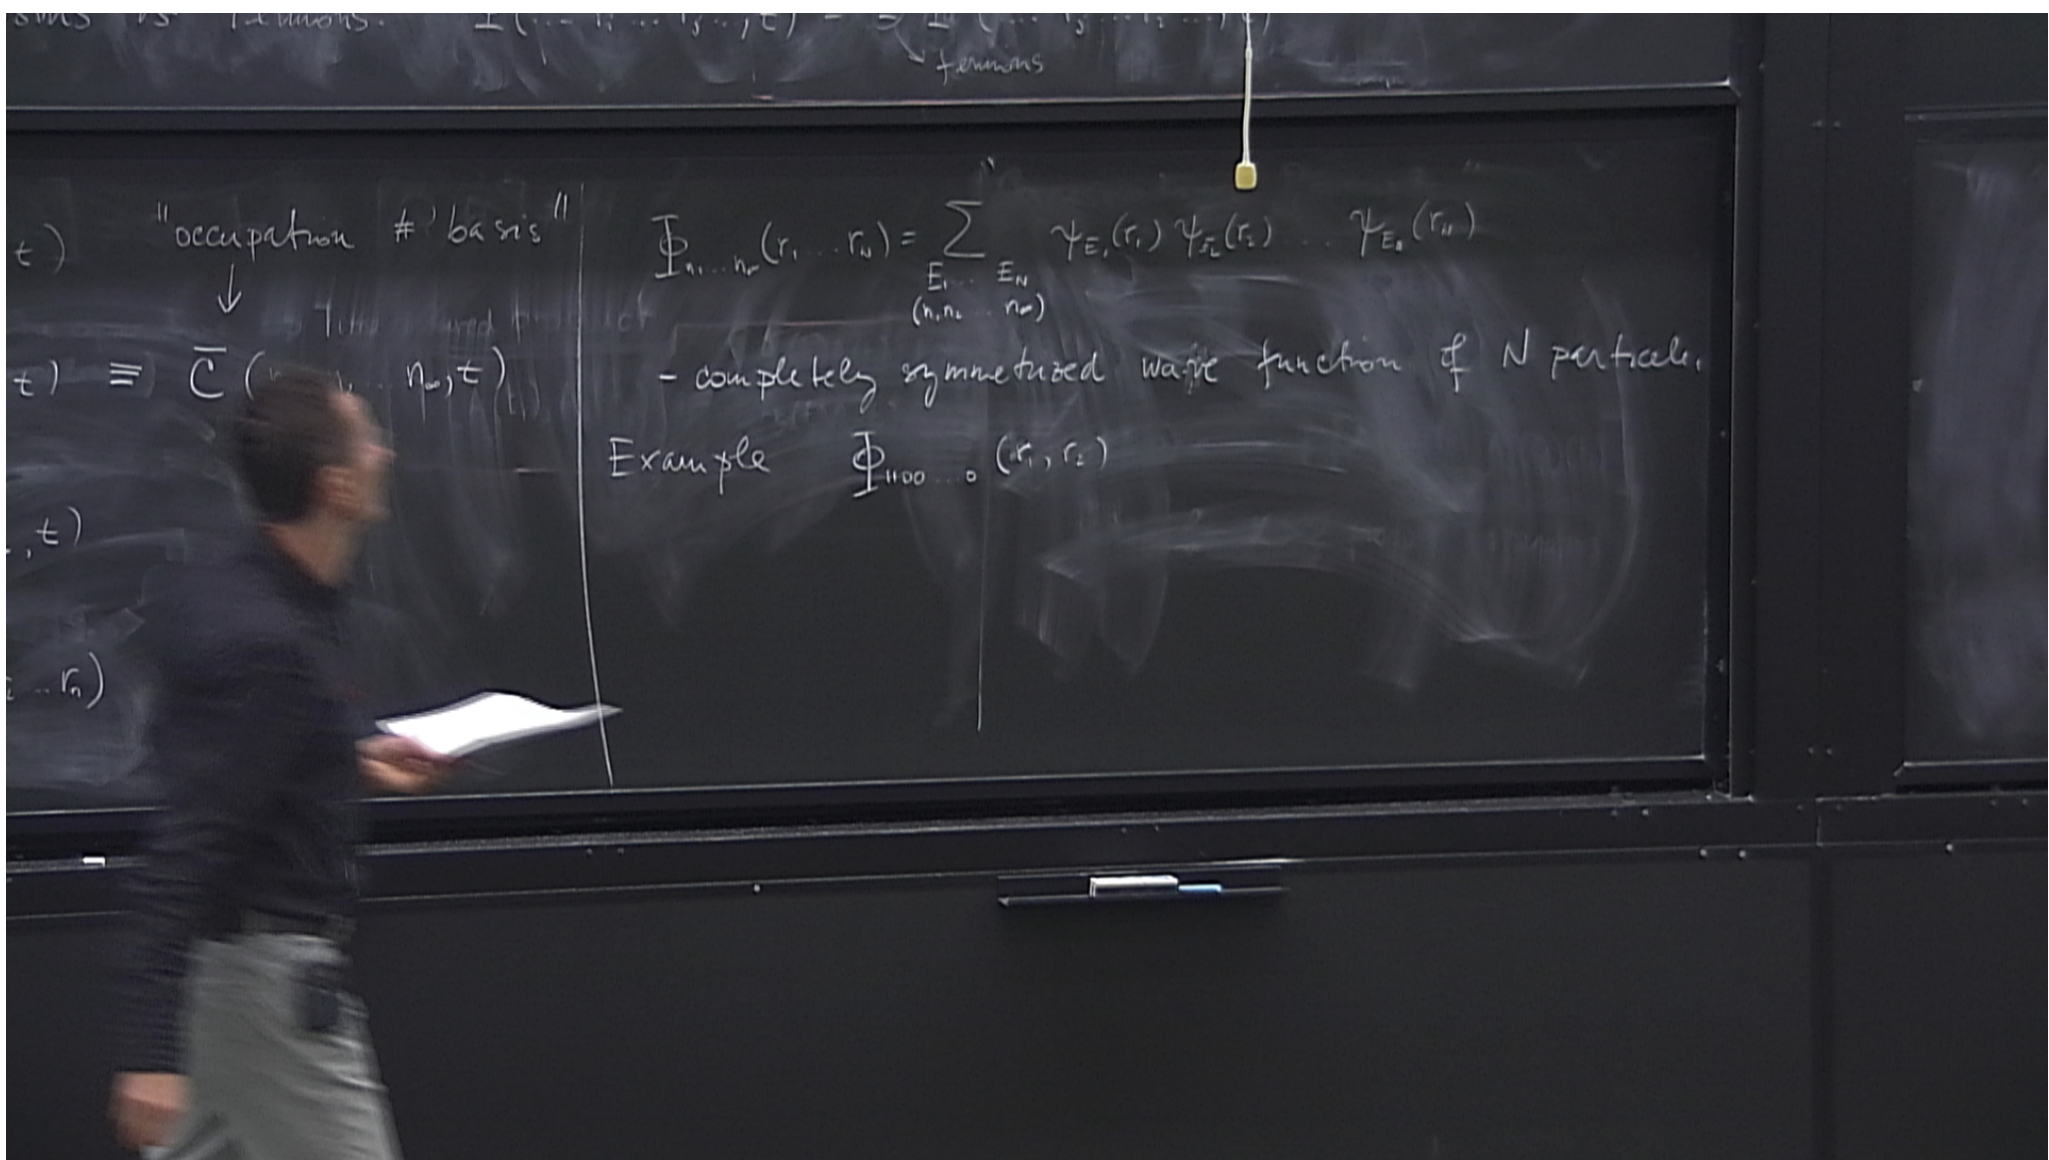 fermions
t) "occupation # basis"
↓
t) ≡ C̅ ( n∞, t)
, t)
.. rₙ)
Φ_{n₁...n∞}(r₁ ... r_N) = ∑_{E₁... E_N (n₁n₂ .. n∞)} ψ_{E₁}(r₁) ψ_{E₂}(r₂) ... ψ_{E_N}(r_N)
- completely symmetrized wave function of N particles.
Example Φ_{1100...0} (r₁, r₂)